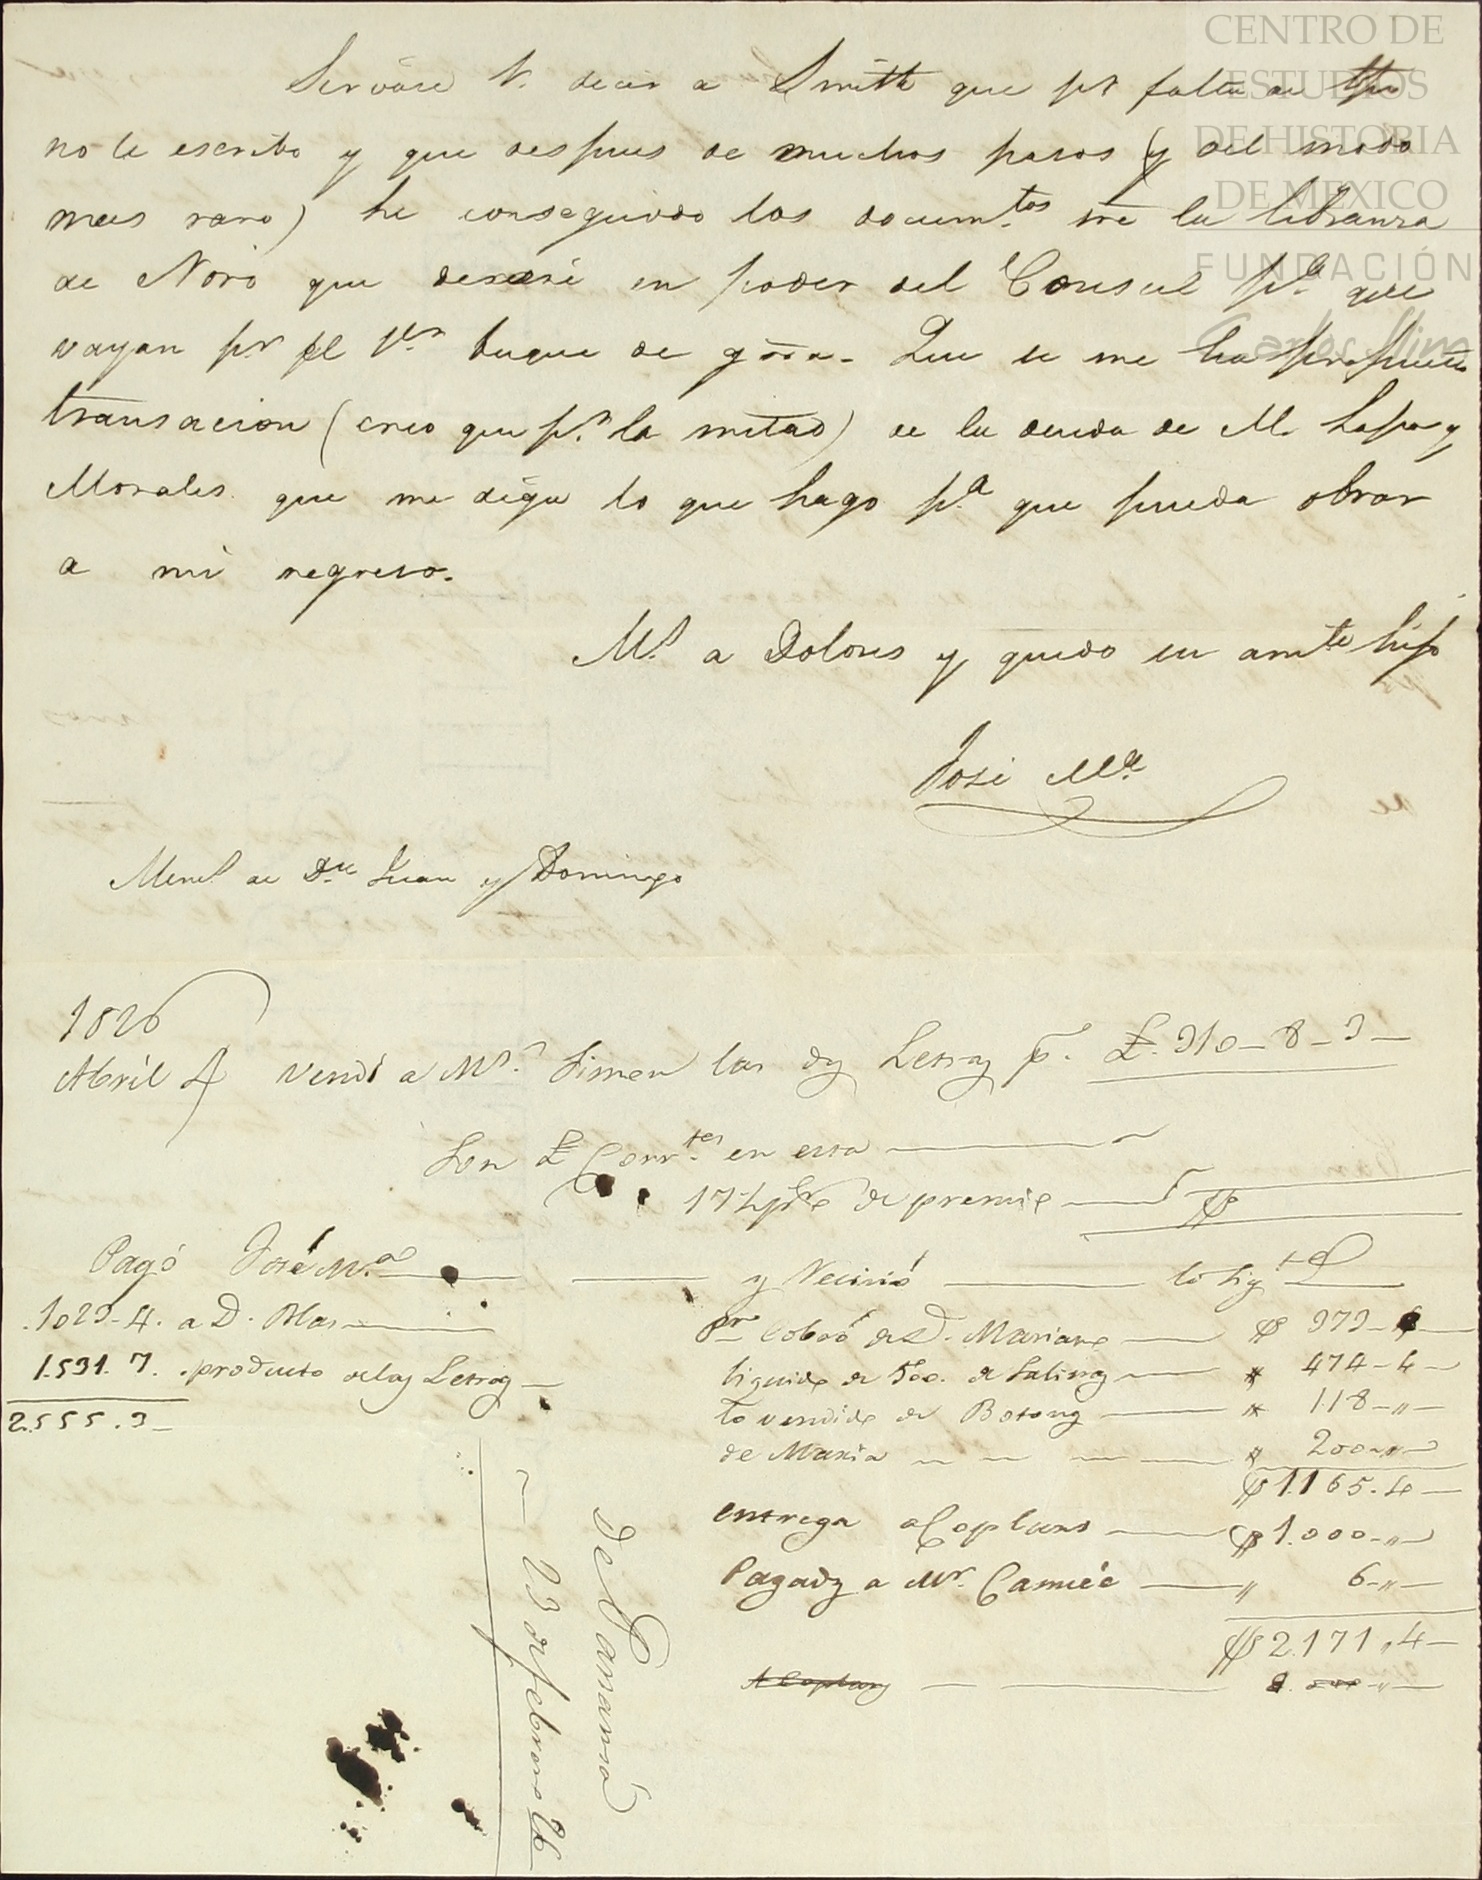 CENTRO DE
ESTUDIOS
DE HISTORIA
DE MEXICO
FUNDACIÓN
Carlos Slim
Servase V. decir a Smith que pr falta de tpo
no le escribo y que despues de muchos pasos (y del modo
mas raro) he conseguido los docum.tos sre la libranza
de Noro que dexaré en poder del Consul p.a que
vayan pr el pr buque de grra. Que se me ha propuesto
transacion (creo que p.r la mitad) de la deuda de M.
Morales que me diga lo que hago p.a que pueda obrar
a mi regreso.
M.s a Dolores y quedo su amte hijo
José Ma.
Mem.s de Juan y Domingo
1826
Abril 4 Vendi a Mr. Simon las dz Letraz p. £. 310-8-3-
Son £ Corr.tes en essa
17½ pre de premio $
Pagó José M.a
1023-4. a D. Blas
1.531. 7. producto delaz Letraz
2.555.3-
y Recivió lo sig.te
Cobró de D. Mariano $ 373-
liquido de de Salinaz 474-4-
lo vendido de Botonz 118-"-
de Maria 200-"-
$1.165.4-
entrega a Coplans $1.000-"-
Pagadz a Mr. Camée " 6-"-
$2.171,,4-
A Coplanz
de Panamá
23 de febrero 26